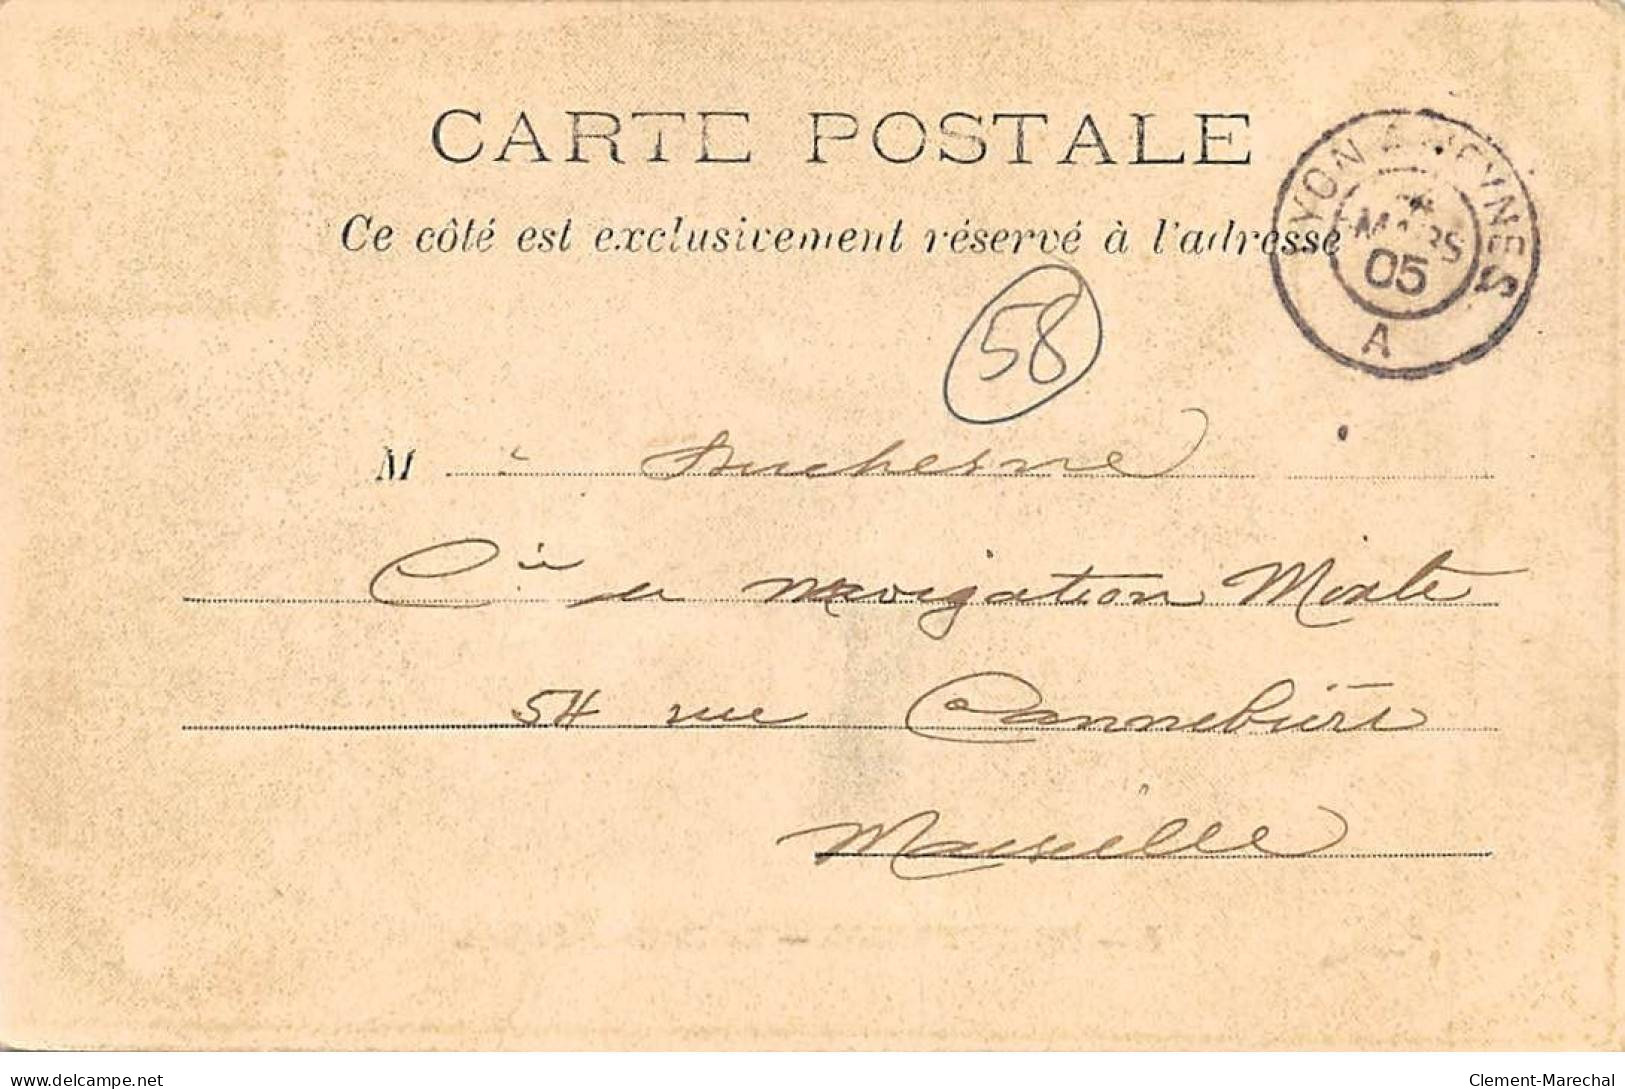 CARTE POSTALE
Ce côté est exclusivement réservé à l'adresse
YON A VEYNES
MARS
05
A
58
M Duchesne
Cie de navigation Mixte
54 rue Cannebière
Marseille
delcampe.net
Clement-Marechal